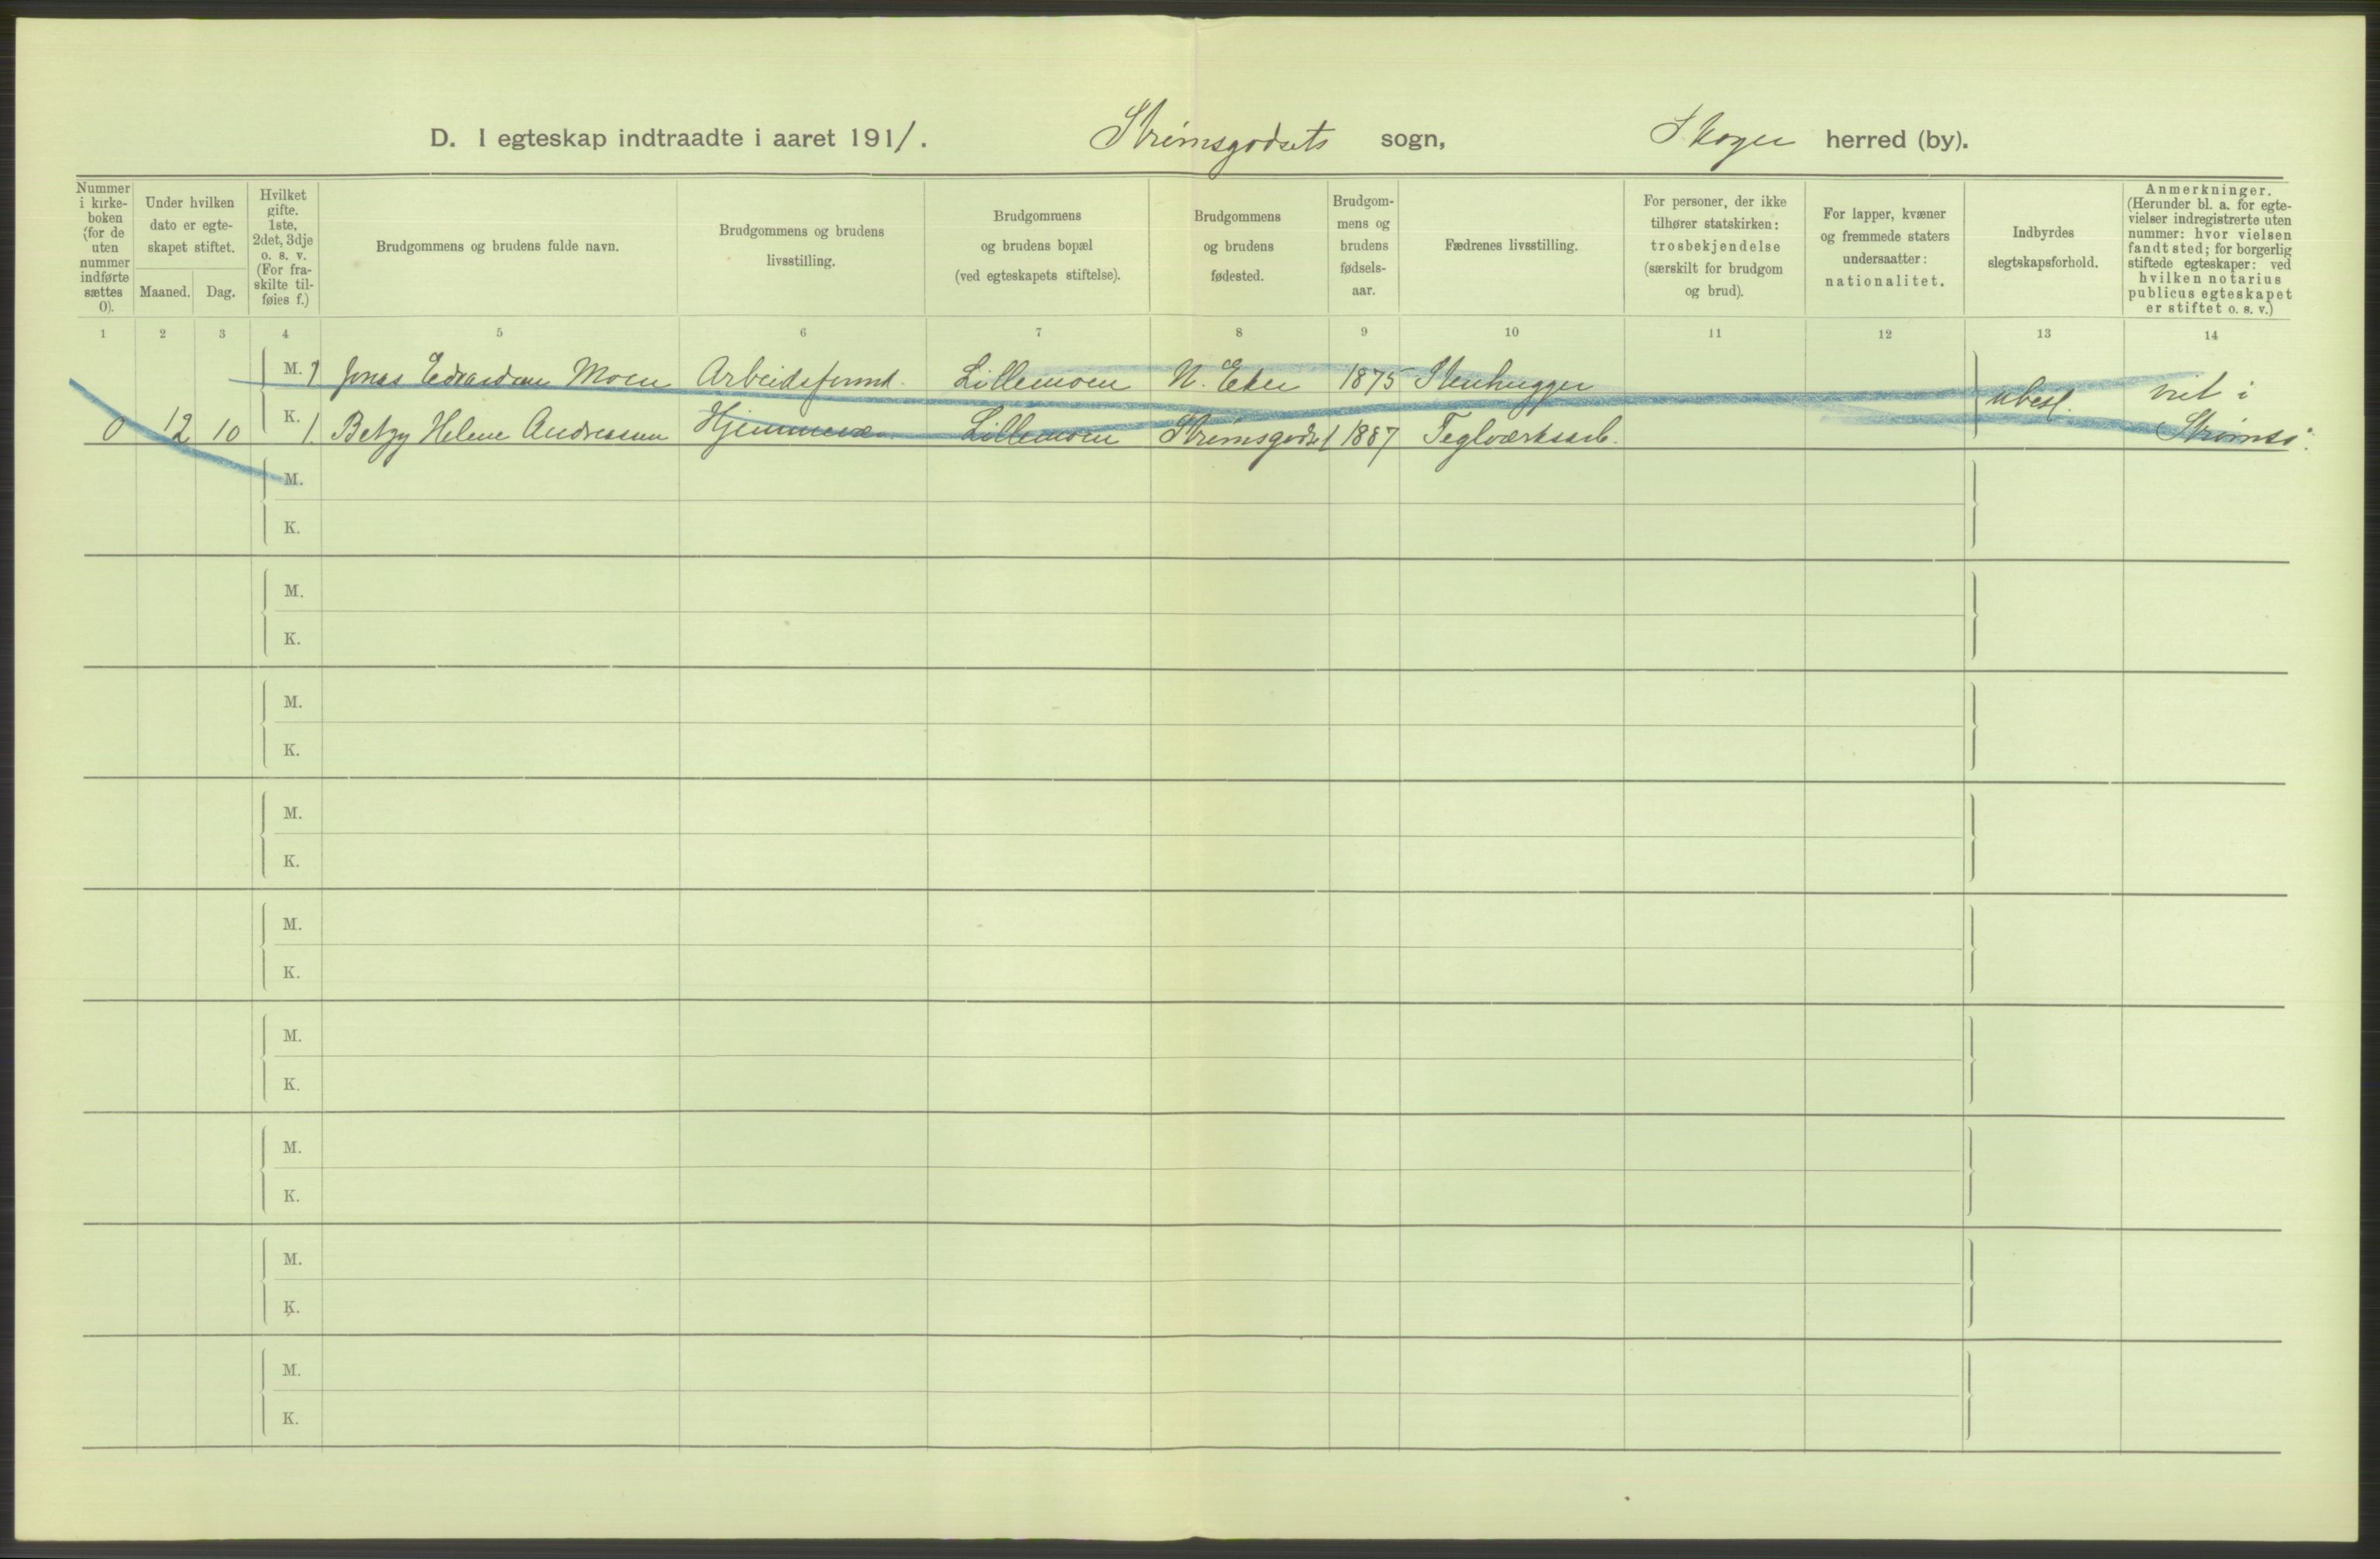 D. I egteskap indtraadte i aaret 1911. Strømsgodsets sogn, Skoger herred (by).
Nummer i kirke-boken (for de uten nummer indførte sættes 0).
Under hvilken dato er egte-skapet stiftet.
Maaned. Dag.
Hvilket gifte. 1ste, 2det, 3dje o. s. v. (For fra-skilte til-føies f.)
Brudgommens og brudens fulde navn.
Brudgommens og brudens livsstilling.
Brudgommens og brudens bopæl (ved egteskapets stiftelse).
Brudgommens og brudens fødested.
Brudgom-mens og brudens fødsels-aar.
Fædrenes livsstilling.
For personer, der ikke tilhører statskirken: trosbekjendelse (særskilt for brudgom og brud).
For lapper, kvæner og fremmede staters undersaatter: nationalitet.
Indbyrdes slegtskapsforhold.
Anmerkninger. (Herunder bl. a. for egte-vielser indregistrerte uten nummer: hvor vielsen fandt sted; for borgerlig stiftede egteskaper: ved hvilken notarius publicus egteskapet er stiftet o. s. v.)
1 2 3 4 5 6 7 8 9 10 11 12 13 14
M. 1 Jonas Edvardsen Moen Arbeidsformd. Lillemoen N. Eker 1875 Stenhugger ubesl. viet i
0 12 10 K. 1. Betzy Helene Andressen Hjemmevær. Lillemoen Strømsgodset 1887 Teglværksarb. Strømsø.
M.
K.
M.
K.
M.
K.
M.
K.
M.
K.
M.
K.
M.
K.
M.
K.
M.
K.